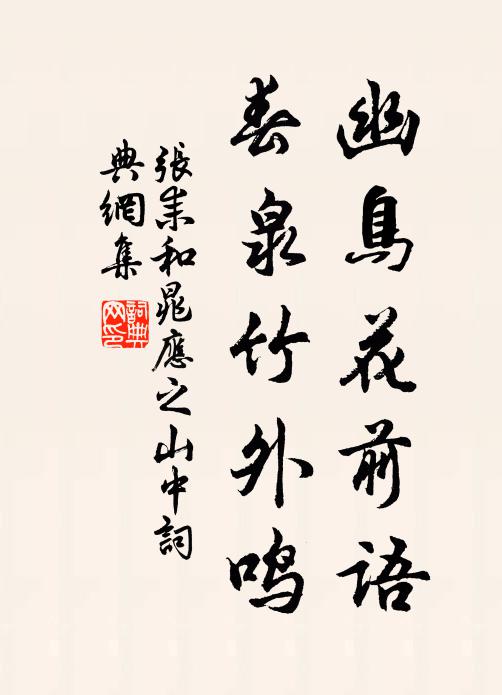 幽鳥花前語
春泉竹外鳴
張耒和晁應之山中詞
典網集
詞典
网印